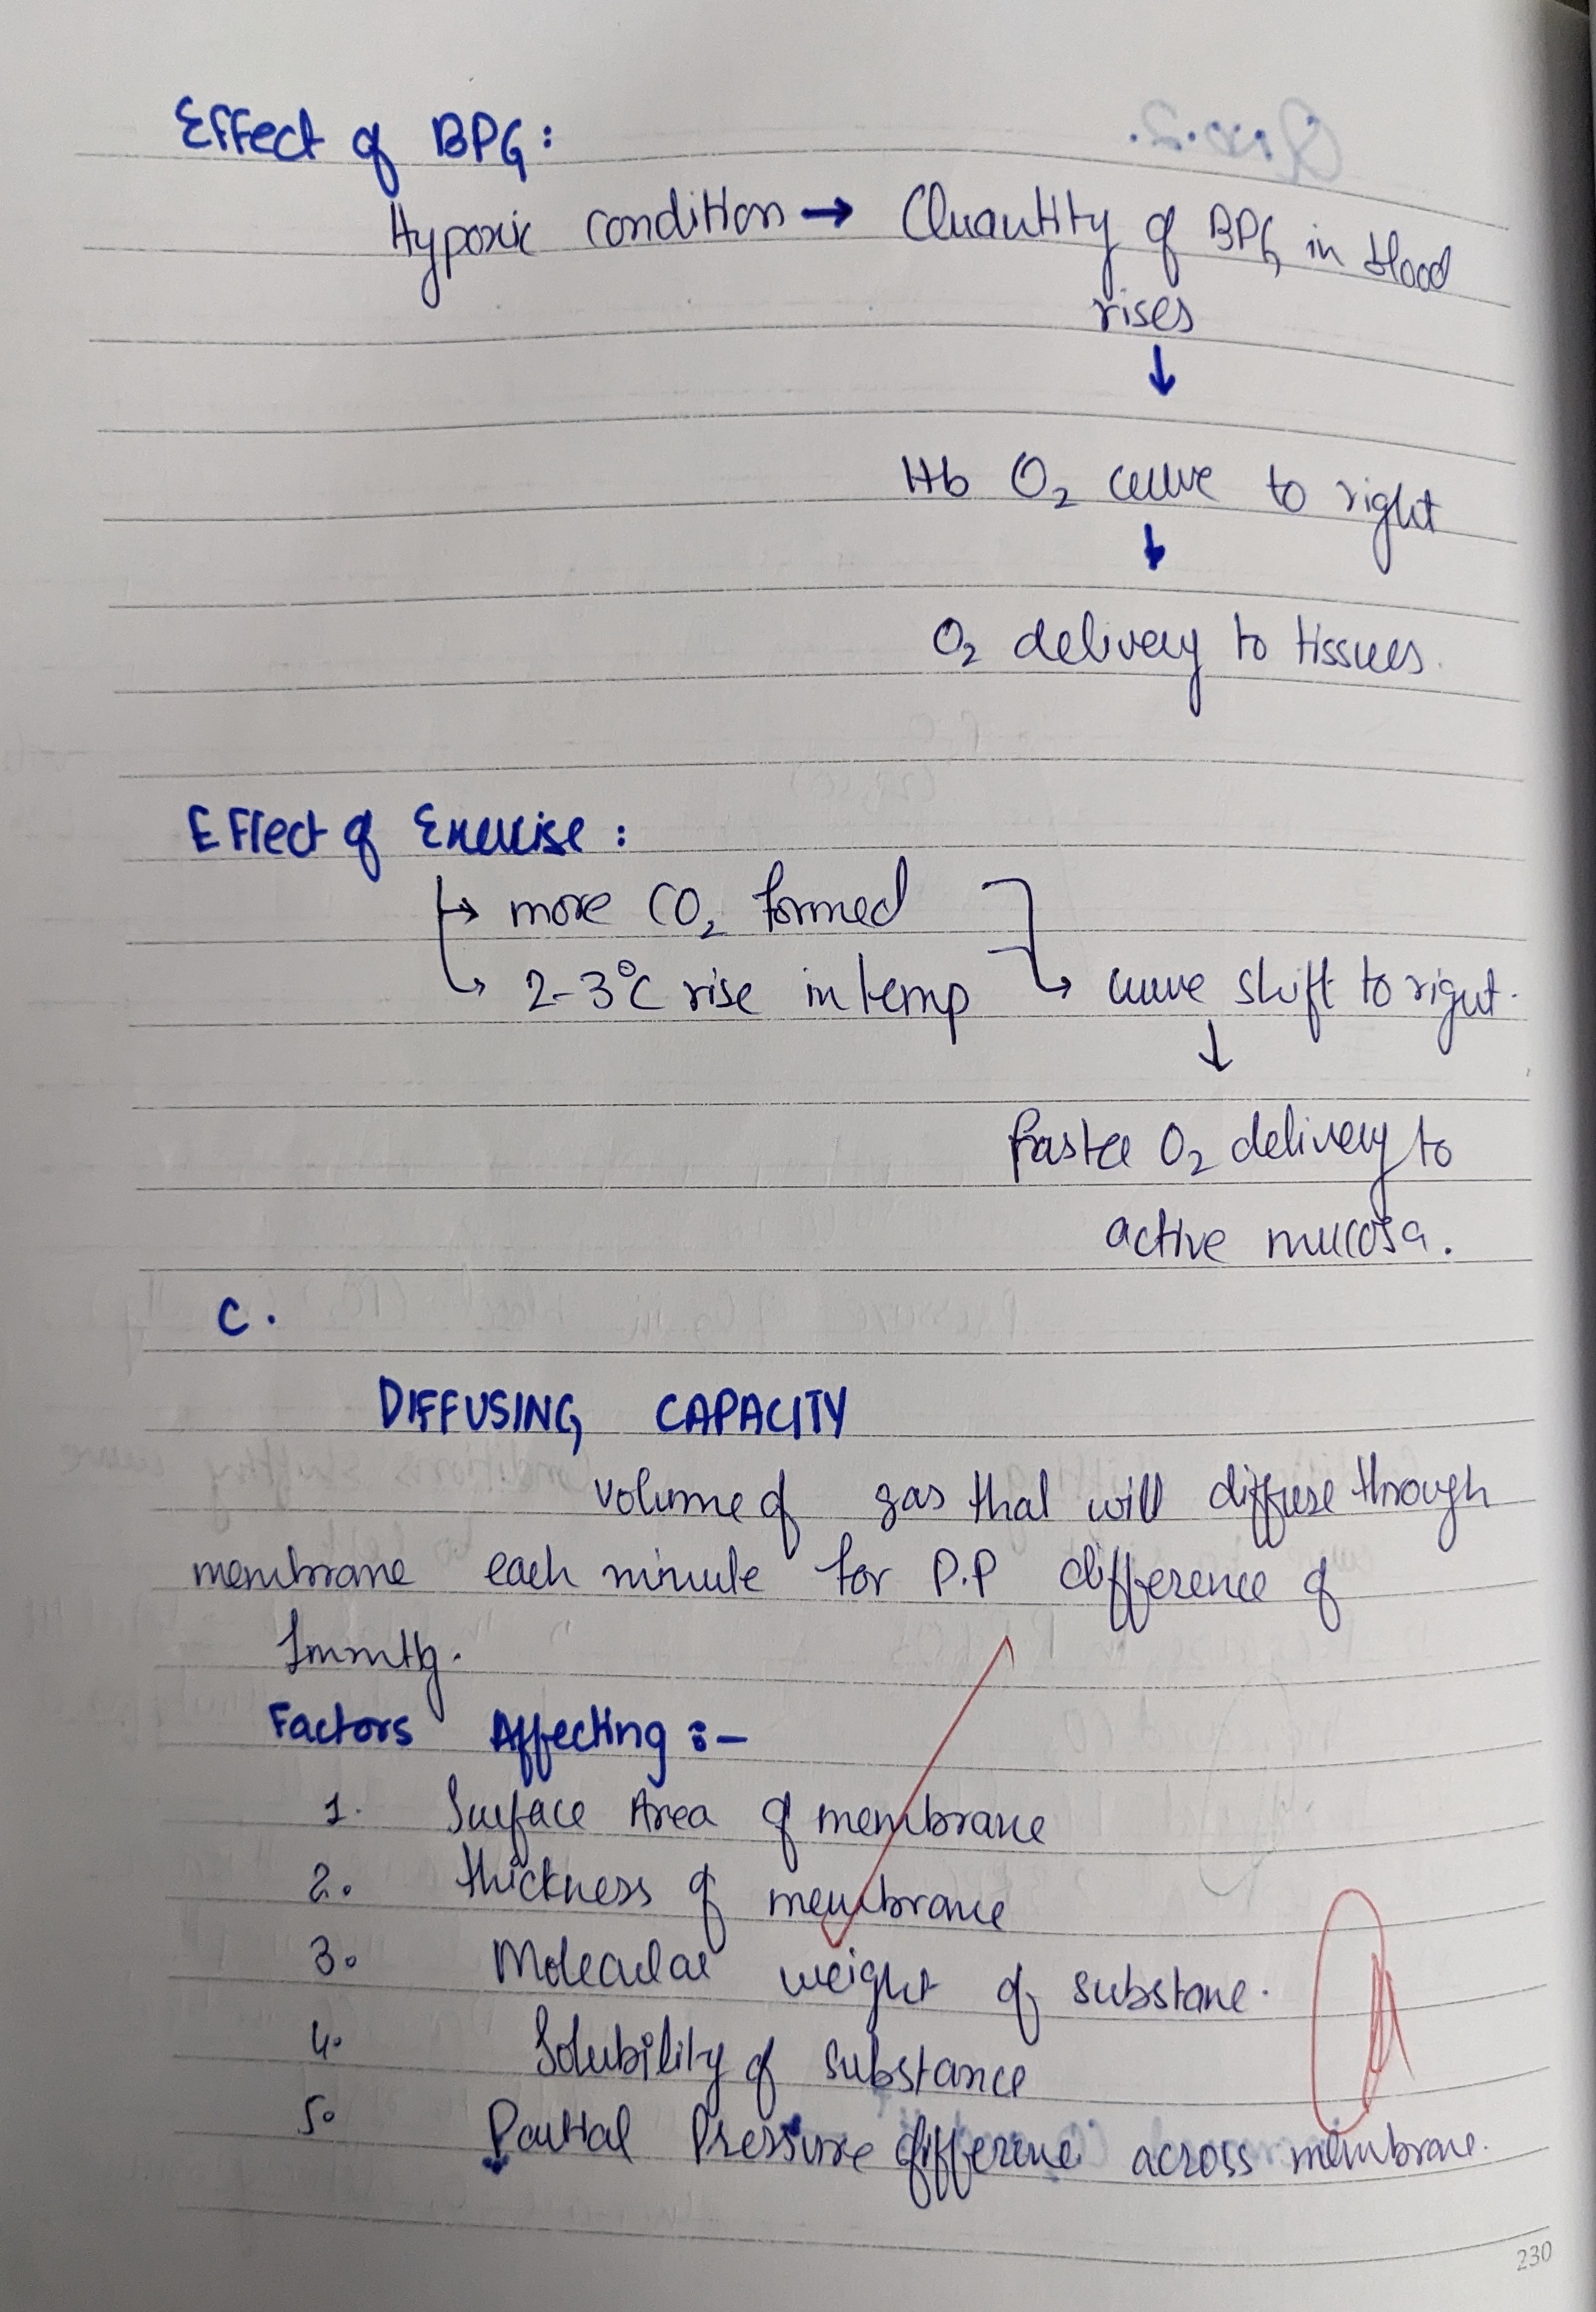 Effect of BPG:
Hypoxic condition → Quantity of BPG in blood
rises
↓
Hb O₂ curve to right
↓
O₂ delivery to tissues.
Effect of Exercise:
↳ more CO₂ formed
↳ 2-3°C rise in temp ↳ curve shift to right.
↓
faster O₂ delivery to
active mucosa.
C.
DIFFUSING CAPACITY
volume of gas that will diffuse through
membrane each minute for P.P difference of
1mmHg.
Factors Affecting :-
1. Surface Area of membrane
2. thickness of membrane
3. Molecular weight of substane.
4. Solubility of substance
5. Partial Pressure difference across membrane.
230